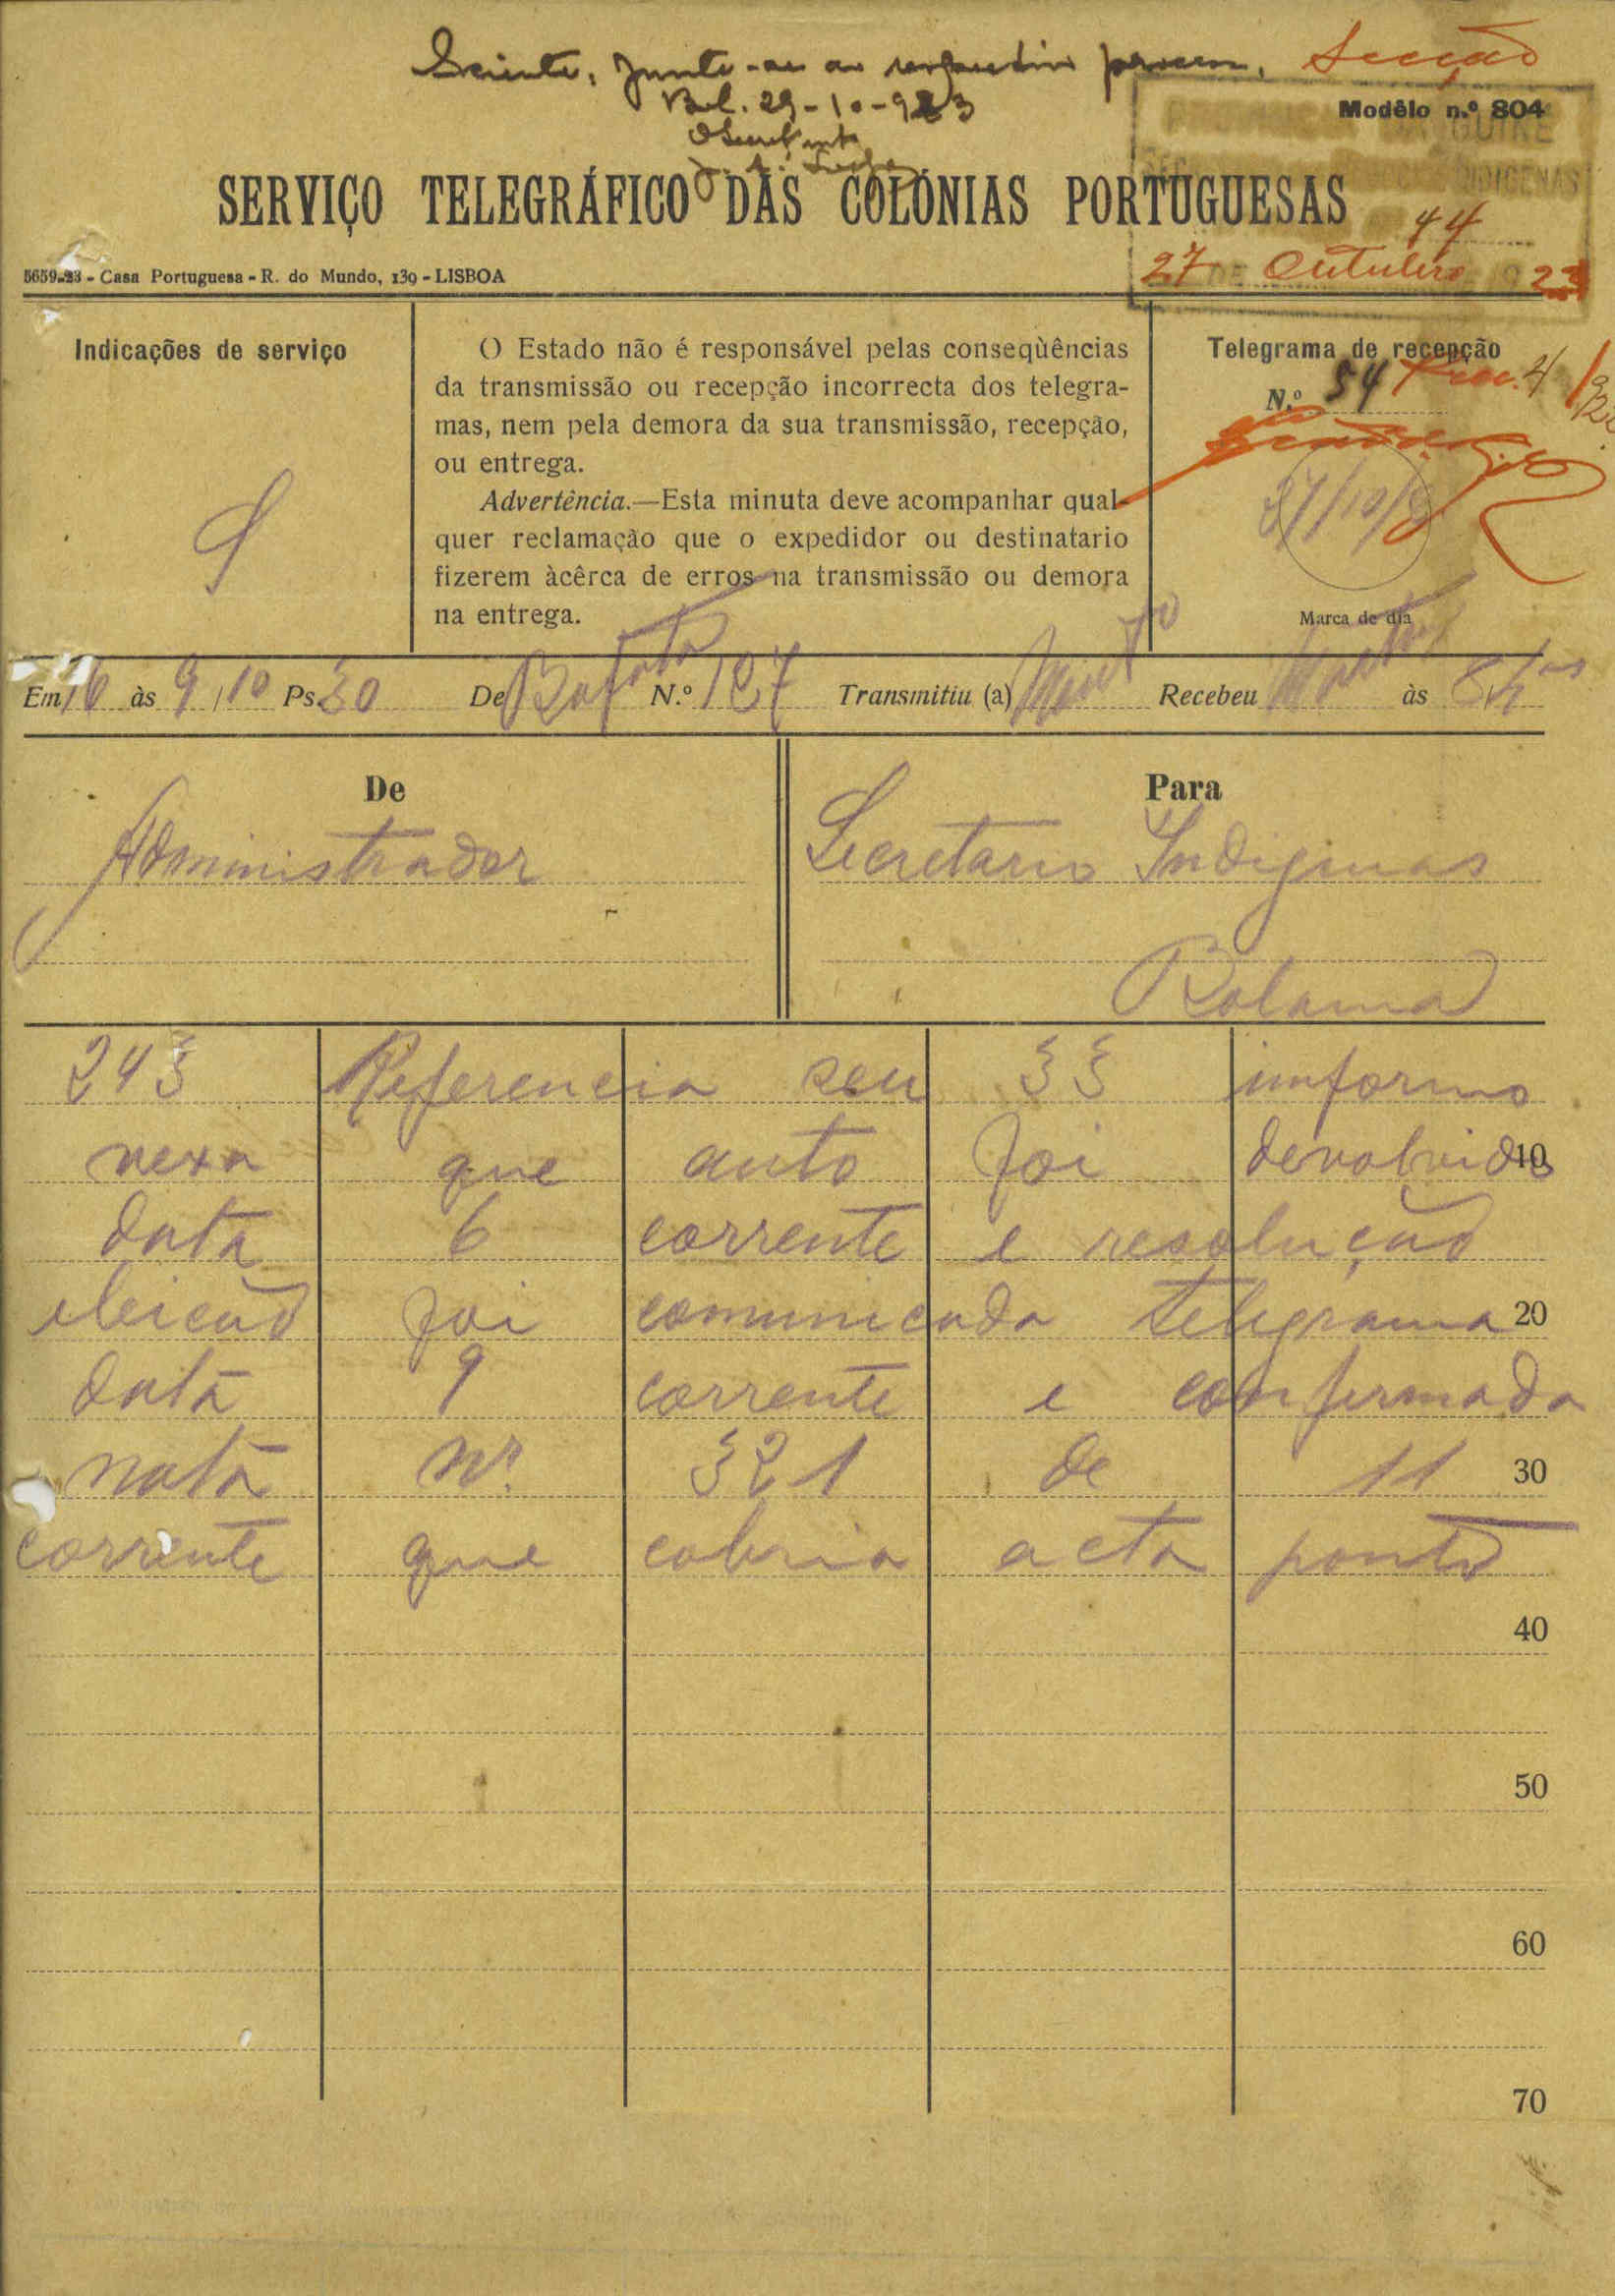 Sciente, Junte-se ao respectivo processo. Secção
Bl. 29-10-923
Modêlo n.º 804
SERVIÇO TELEGRÁFICO DAS COLÓNIAS PORTUGUESAS
44
27 DE Outubro 1923
5659-23 - Casa Portuguesa - R. do Mundo, 139 - LISBOA
Indicações de serviço
S
O Estado não é responsável pelas conseqùências
da transmissão ou recepção incorrecta dos telegra-
mas, nem pela demora da sua transmissão, recepção,
ou entrega.
Advertência.—Esta minuta deve acompanhar qual-
quer reclamação que o expedidor ou destinatario
fizerem àcêrca de erros na transmissão ou demora
na entrega.
Telegrama de recepção
N.º 54
27/10/
Marca de dia
Em 16 às 9/10 Ps. 30 De Bafatá N.º 187 Transmitiu (a) Recebeu às
De
Administrador
Para
Secretario Indigenas
Bolama
243 Referencia seu 33 informo
vexa que auto foi devolvido 10
data 6 corrente e resolução
eleicão foi comunicada telegrama 20
data 9 corrente e confirmada
nota Nº. 321 de 11 30
corrente que cobria acta ponto
40
50
60
70